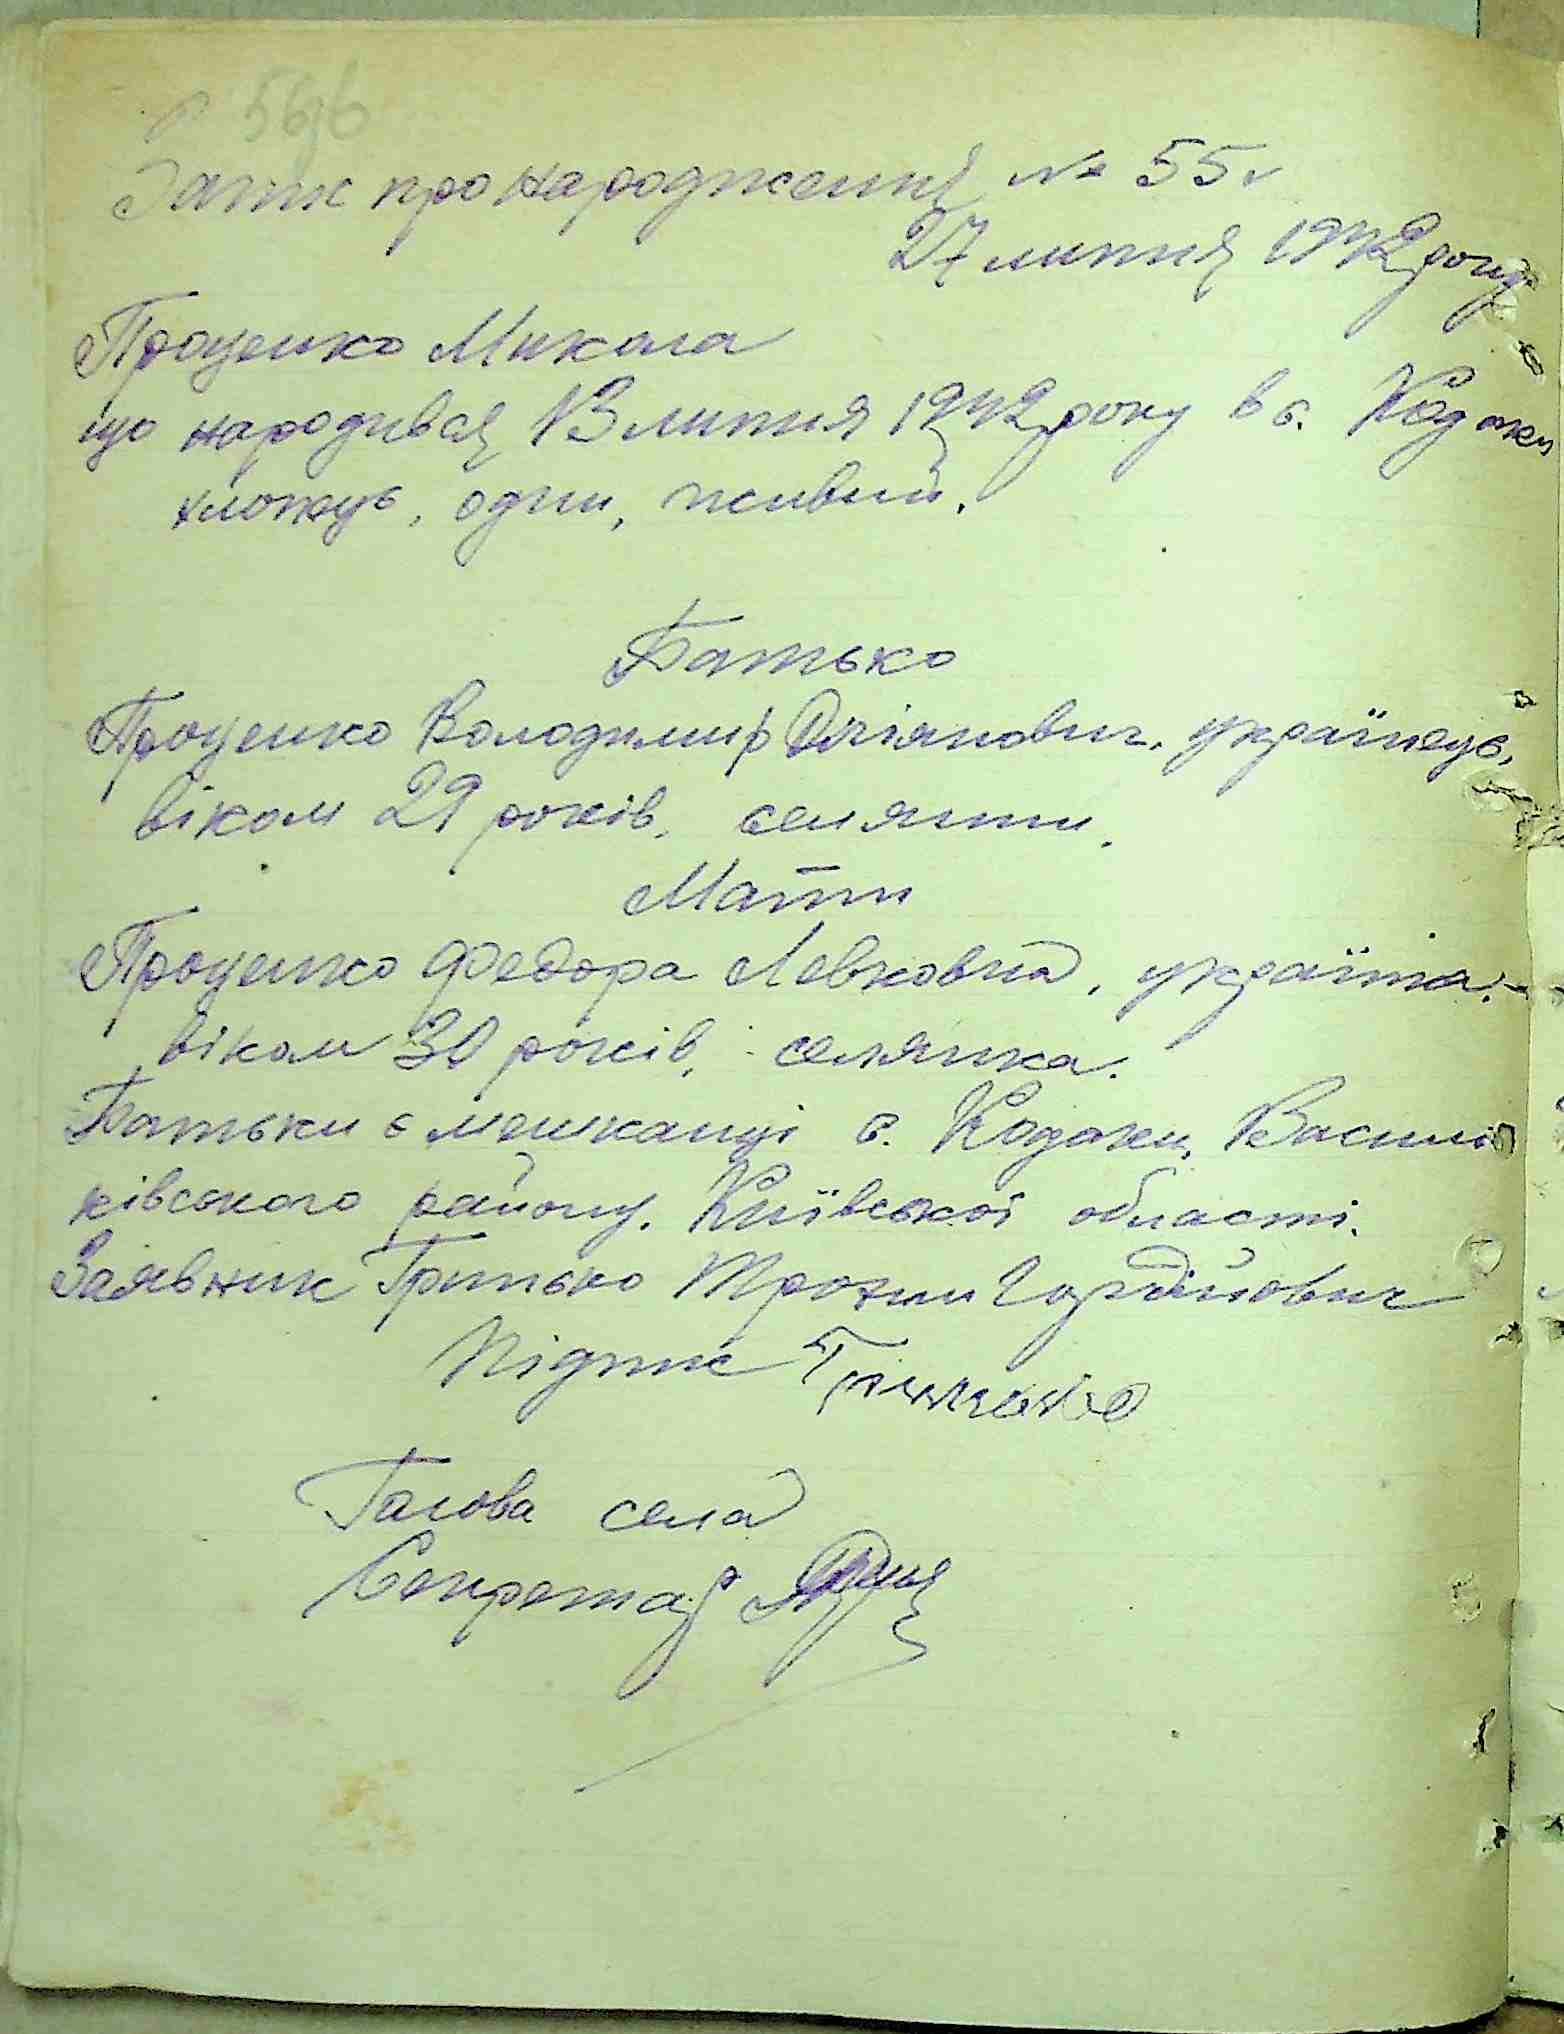 56
Запис про народження № 55
27 липня 1942 року
Проценко Микола
що народився 13 липня 1942 року в с. Кодаки
хлопець, один, живий.
Батько
Проценко Володимир українець,
віком 29 років, селянин.
Мати
Проценко Федора Левковна, українка.
віком 30 років, селянка.
Батьки є мешканці с. Кодаки, Василь
ківського району. Київської області.
Заявник Гринько Трохим Гордійович
Підпис
Голова села
Секретар